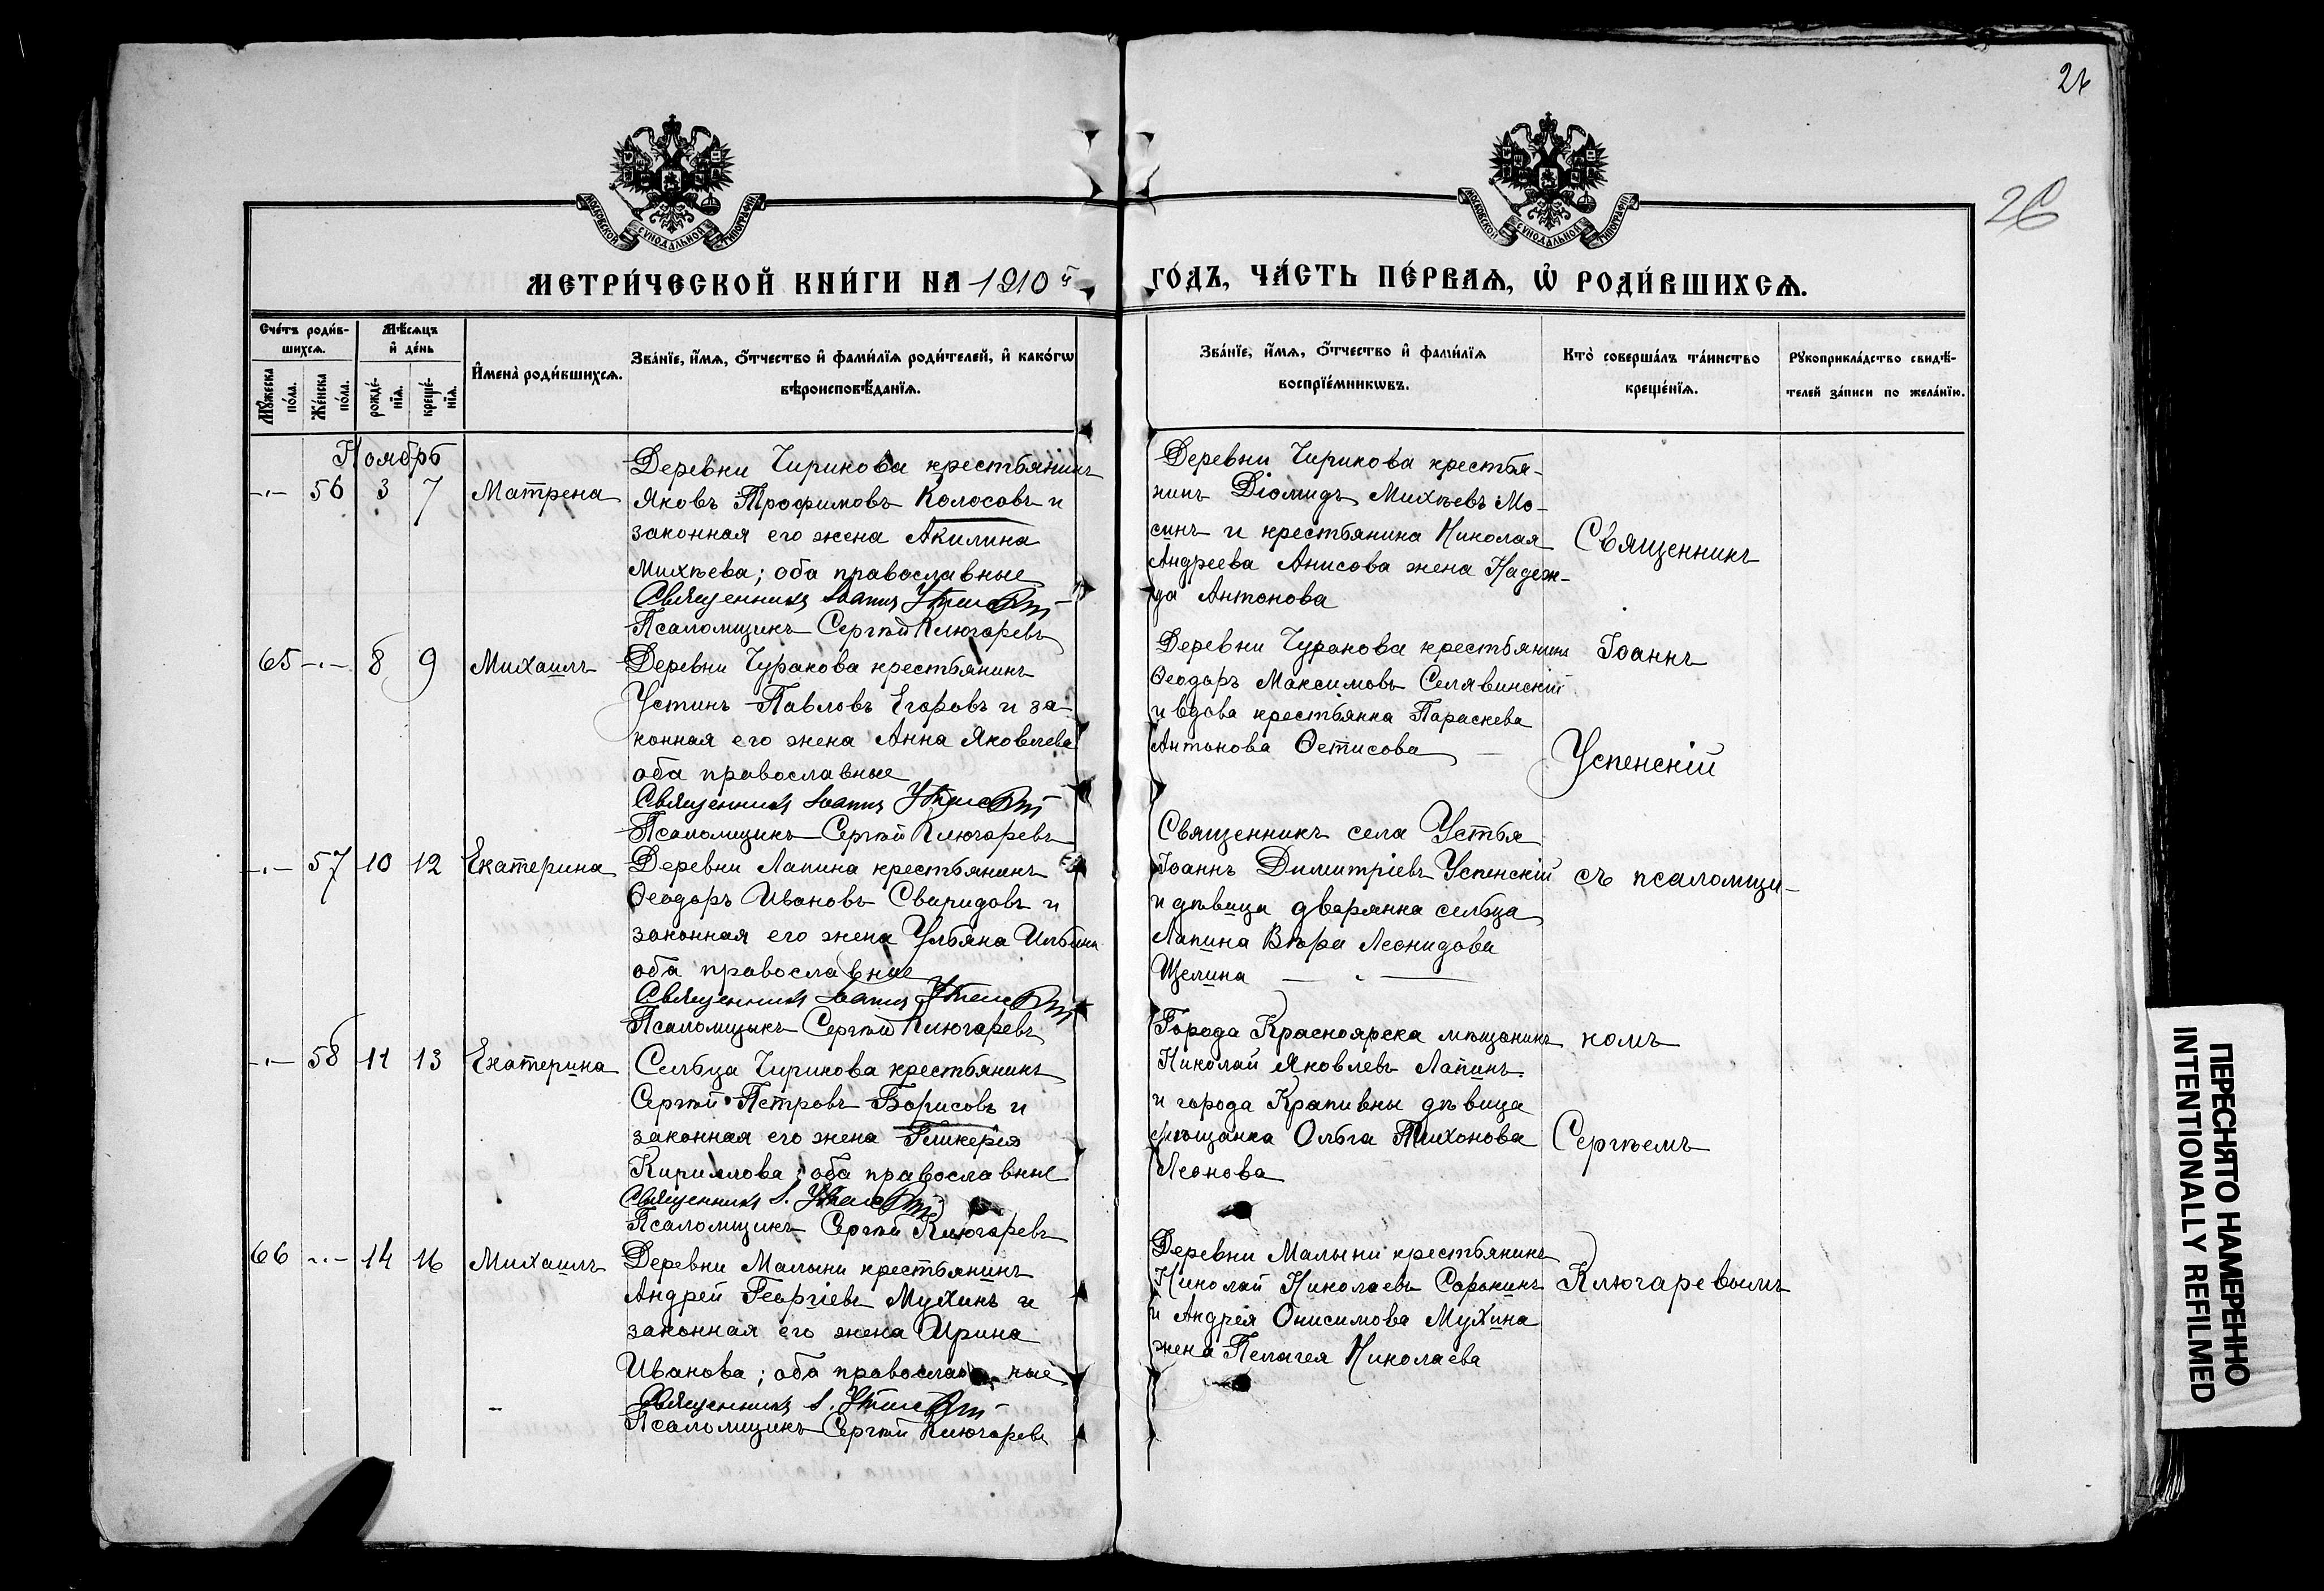 26
26
МОСКОВСКОЙ СѴНОДАЛЬНОЙ ТИПОГРАФІИ
МОСКОВСКОЙ СѴНОДАЛЬНОЙ ТИПОГРАФІИ
МЕТРИ́ЧЕСКОЙ КНИ́ГИ НА 1910й
ГО́ДЪ, ЧА́СТЬ ПЕ́РВАѦ, Ѡ҆ РОДИ́ВШИХСѦ.
Сче́тъ роди́в-
шихсѧ.
Мꙋ́жеска
по́ла.
Же́нска
по́ла.
Мѣ́сѧцъ
и҆ де́нь
рожде́-
нїѧ.
креще́-
нїѧ.
И҆мена̀ роди́вшихсѧ.
Зва́нїе, и҆́мѧ, ѻ҆́тчество и҆ фами́лїѧ роди́телей, и҆ како́гѡ
вѣроисповѣ́данїѧ.
Зва́нїе, и҆́мѧ, ѻ҆́тчество и҆ фами́лїѧ
воспрїе́мникѡвъ.
Кто̀ соверша́лъ та́инство
креще́нїѧ.
Рꙋкоприкла́дство свидѣ́-
телей за́писи по жела́нїю.
Ноябрь
-.- 56 3 7 Матрена
Деревни Чирикова крестьянинъ
Яковъ Трофимовъ Колосовъ и
законная его жена Акилина
Михѣева; оба православные
Священникъ Іоаннъ Успенскій
Псаломщикъ Сергѣй Ключаревъ
Деревни Чирикова крестья-
нинъ Діомидъ Михѣевъ Мо-
синъ и крестьянина Николая
Андреева Анисова жена Надеж-
да Антонова
65 -.- 8 9 Михаилъ
Деревни Чуракова крестьянинъ
Устинъ Павловъ Егоровъ и за-
конная его жена Анна Яковлева
оба православные
Священникъ Іоаннъ Успенскій
Псаломщикъ Сергѣй Ключаревъ
Деревни Чуракова крестьянинъ
Ѳеодоръ Максимовъ Селявинскій
и вдова крестьянка Параскева
Антонова Ѳетисова
-.- 57 10 12 Екатерина
Деревни Лапина крестьянинъ
Ѳеодоръ Ивановъ Свиридовъ и
законная его жена Ульяна Ильина
оба православные
Священникъ Іоаннъ Успенскій
Псаломщикъ Сергѣй Ключаревъ
Священникъ села Устья
Іоаннъ Димитріевъ Успенскій
и дѣвица дворянка сельца
Лапина Вѣра Леонидова
Щелина
-.- 58 11 13 Екатерина
Сельца Чирикова крестьянинъ
Сергѣй Петровъ Борисовъ и
законная его жена Гликерія
Кириллова; оба православные
Священникъ І. Успенскій
Псаломщикъ Сергѣй Ключаревъ
Города Красноярска мѣщанинъ
Николай Яковлевъ Лапинъ
и города Крапивны дѣвица
мѣщанка Ольга Тихонова
Леонова
66 -.- 14 16 Михаилъ
Деревни Малыни крестьянинъ
Андрей Георгіевъ Мухинъ и
законная его жена Ирина
Иванова; оба православные
Священникъ І. Успенскій
Псаломщикъ Сергѣй Ключаревъ
Деревни Малыни крестьянинъ
Николай Николаевъ Сорокинъ
и Андрея Онисимова Мухина
жена Пелагея Николаева
Священникъ
Іоаннъ
Успенскій
съ псаломщи-
комъ
Сергѣемъ
Ключаревымъ
ПЕРЕСНЯТО НАМЕРЕННО
INTENTIONALLY REFILMED